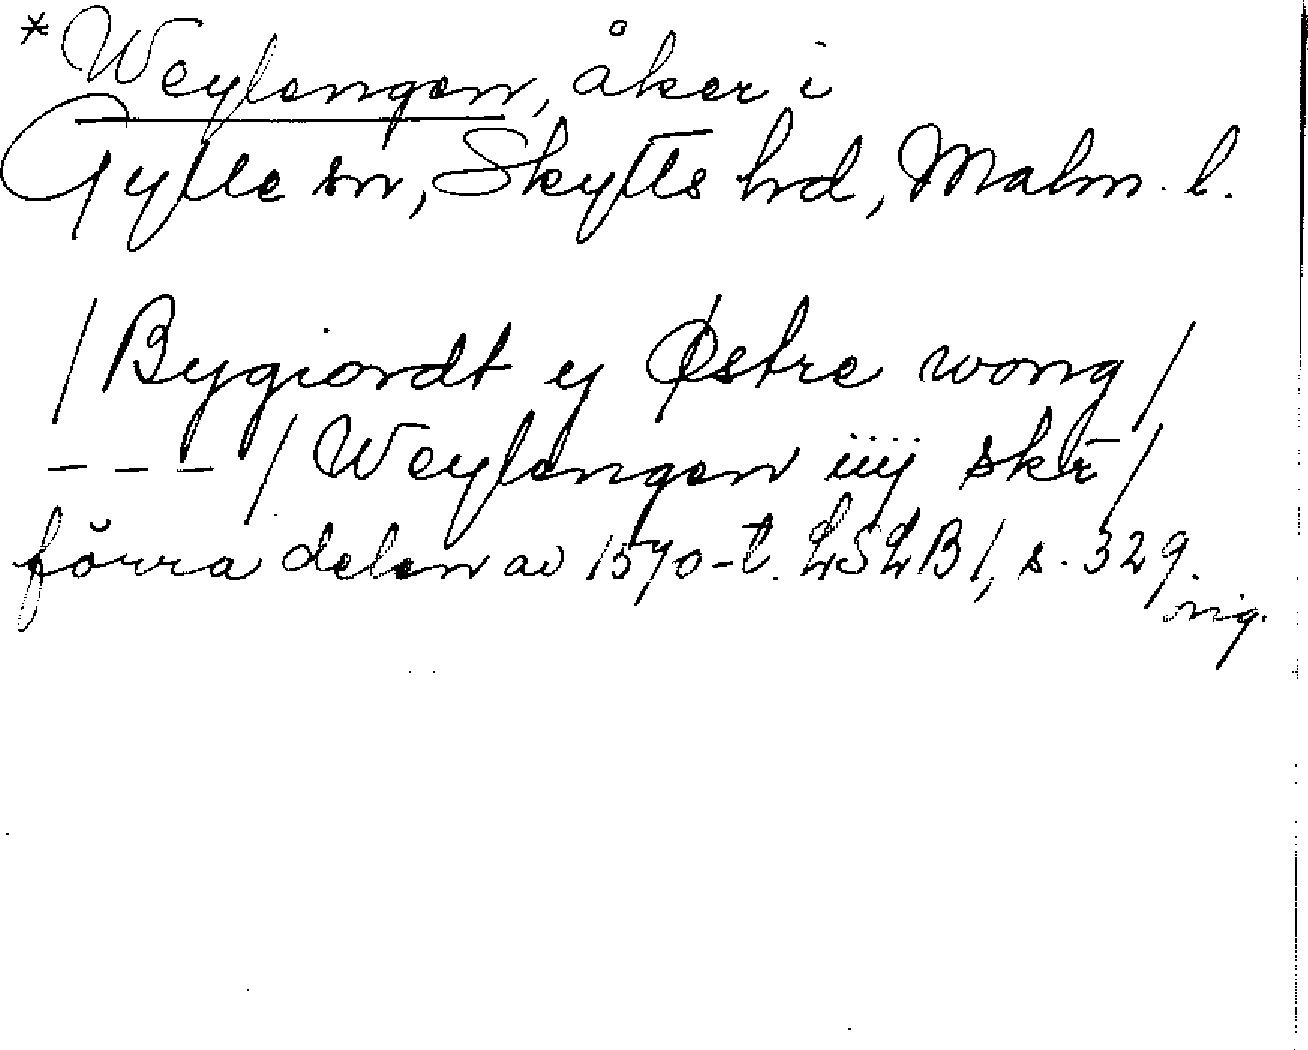 *Weylengen, åker i
Gylle sn, Skytts hd, Malm. l.
/Bygiordt y Østre wong/
--- /Weylengen iiij skr̄/
förra delen av 1570-t. LSLB 1, s. 329.
orig.